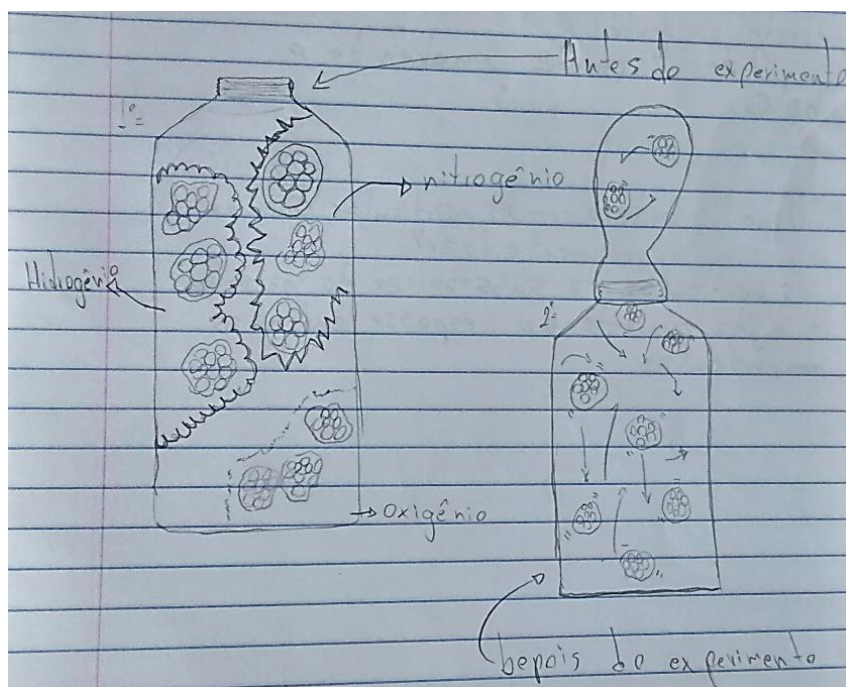 Antes do experimento
1º=
nitrogênio
Hidrogênio
2º=
Oxigênio
bepois do experimento